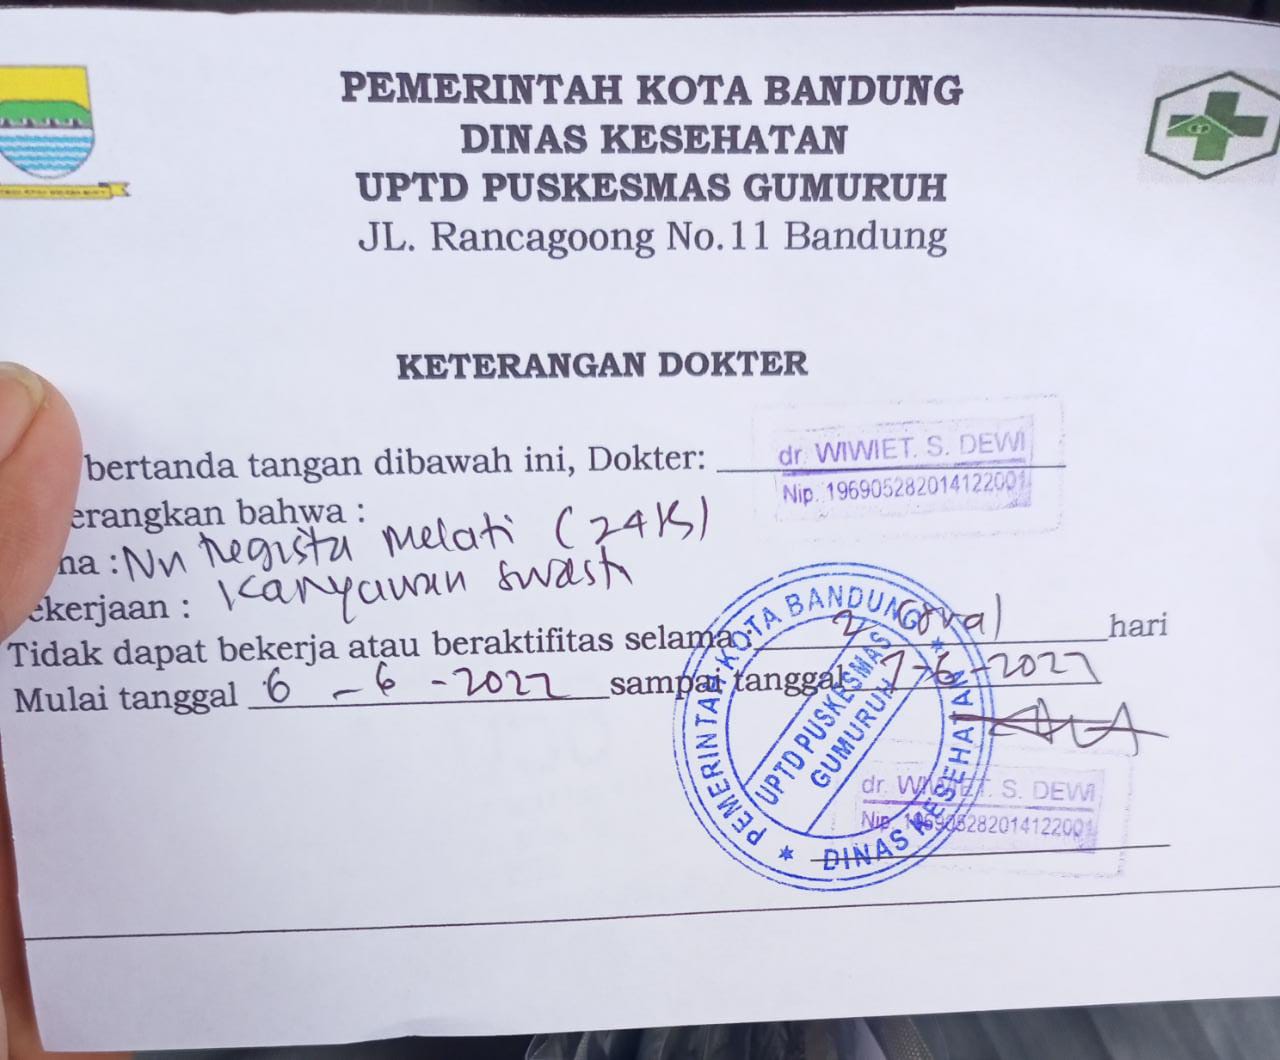 PEMERINTAH KOTA BANDUNG
DINAS KESEHATAN
UPTD PUSKESMAS GUMURUH
JL. Rancagoong No.11 Bandung
KETERANGAN DOKTER
bertanda tangan dibawah ini, Dokter: dr. WIWIET. S. DEWI
Nip. 196905282014122001
erangkan bahwa :
na : Nn Regista Melati (24
ekerjaan : Karyawan swasta
Tidak dapat bekerja atau beraktifitas selama : 2 hari
Mulai tanggal 6 - 6 - 2022 sampai tanggal 7-6-2022
PEMERINTAH KOTA BANDUNG
UPTD PUSKESMAS
GUMURUH
DINAS KESEHATAN
dr. WIWIET. S. DEWI
Nip. 196905282014122001